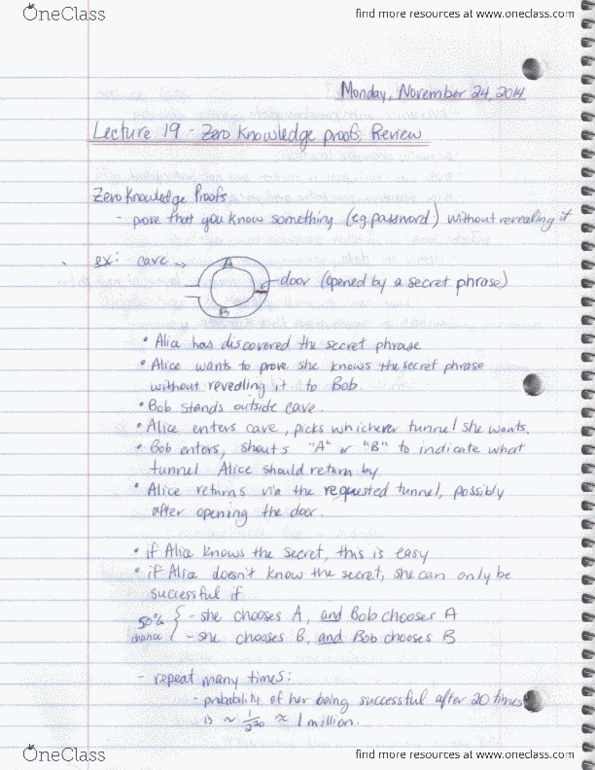 OneClass find more resources at www.oneclass.com
Monday, November 24, 2014
Lecture 19 - Zero Knowledge proofs, Review
Zero Knowledge Proofs
- prove that you know something (eg. password) without revealing it
ex: cave →
A
door (opened by a secret phrase)
B
• Alice has discovered the secret phrase
• Alice wants to prove she knows the secret phrase
without revealing it to Bob.
• Bob stands outside cave.
• Alice enters cave, picks whichever tunnel she wants.
• Bob enters, shouts "A" or "B" to indicate what
tunnel Alice should return by
• Alice returns via the requested tunnel, possibly
after opening the door.
• if Alice knows the secret, this is easy
• if Alice doesn't know the secret, she can only be
successful if
50% chance { - she chooses A, and Bob chooses A
- she chooses B, and Bob chooses B
- repeat many times:
- probability of her being successful after 20 times
is ~ 1/2²⁰ ≈ 1 million.
OneClass find more resources at www.oneclass.com